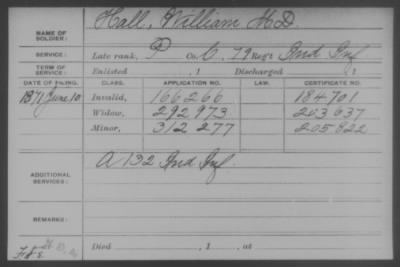 Hall, William H. D.
NAME OF SOLDIER:
SERVICE: Late rank, P Co. C, 79 Reg't Ind Inf
TERM OF SERVICE: Enlisted , 1 Discharged , 1
DATE OF FILING. CLASS. APPLICATION NO. LAW. CERTIFICATE NO.
1871 June 10 Invalid, 166266 184701
Widow, 292973 203637
Minor, 312277 205822
A 132 Ind Inf
ADDITIONAL SERVICES:
REMARKS:
Died , 1 , at